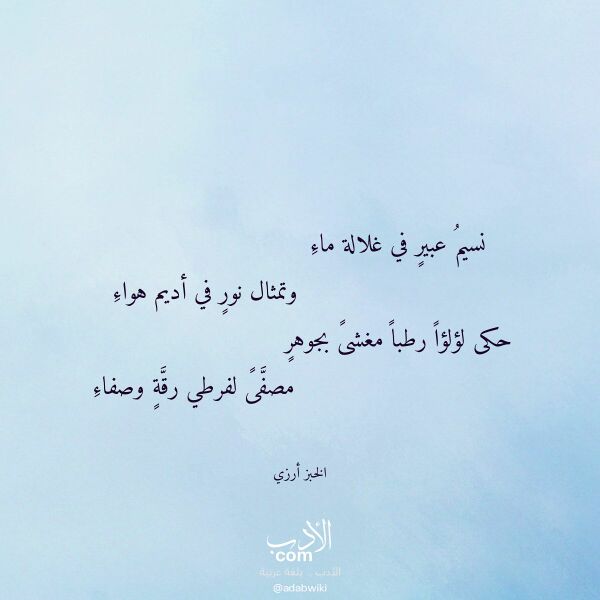 نسيمُ عبيرٍ في غلالة ماءِ
وتمثال نورٍ في أديم هواءِ
حكى لؤلؤاً رطباً مغشىً بجوهرٍ
مصفَّىً لفرطي رقَّةٍ وصفاءِ
الخبز أرزي
الأدب
com
الأدب .. بلغة عربية
@adabwiki